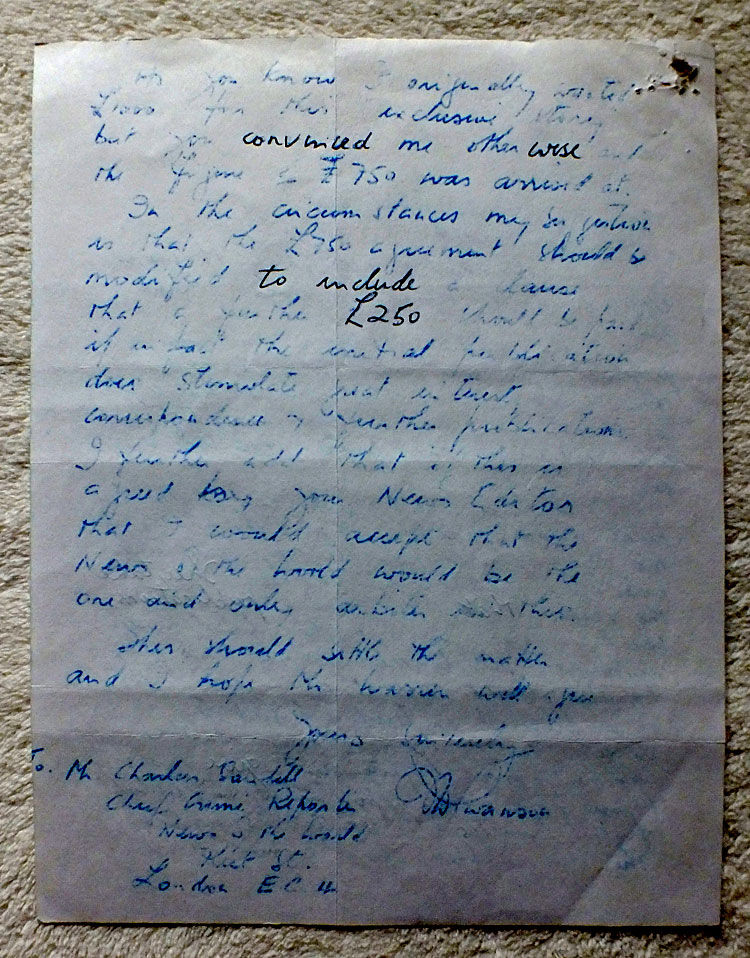 As you know I originally wanted
£1000 for this exclusive story
but you convinced me other wise and
the figure of £750 was arrived at.
In the circumstances my suggestion
is that the £750 agreement should be
modified to include a clause
that a further £250 should be paid
if in fact the initial publication
does stimulate great interest,
correspondence or further publication
I further add that if this is
agreed by your News Editor
that I would accept that the
News of the World would be the
one and only arbiter in this
This should settle the matter
and I hope Mr Warren will agree
Yours Sincerely
To. Mr Charles Sandell
Chief Crime Reporter
News of the World
Fleet St.
London E C 4